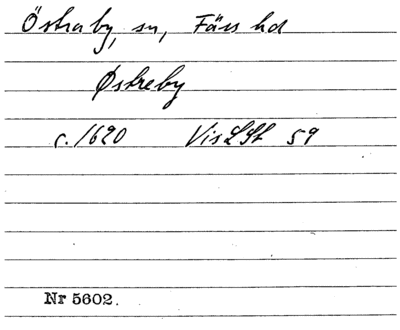 Östraby, sn, Färs hd
Østreby
c. 1620 VisLSt 59
Nr 5602.